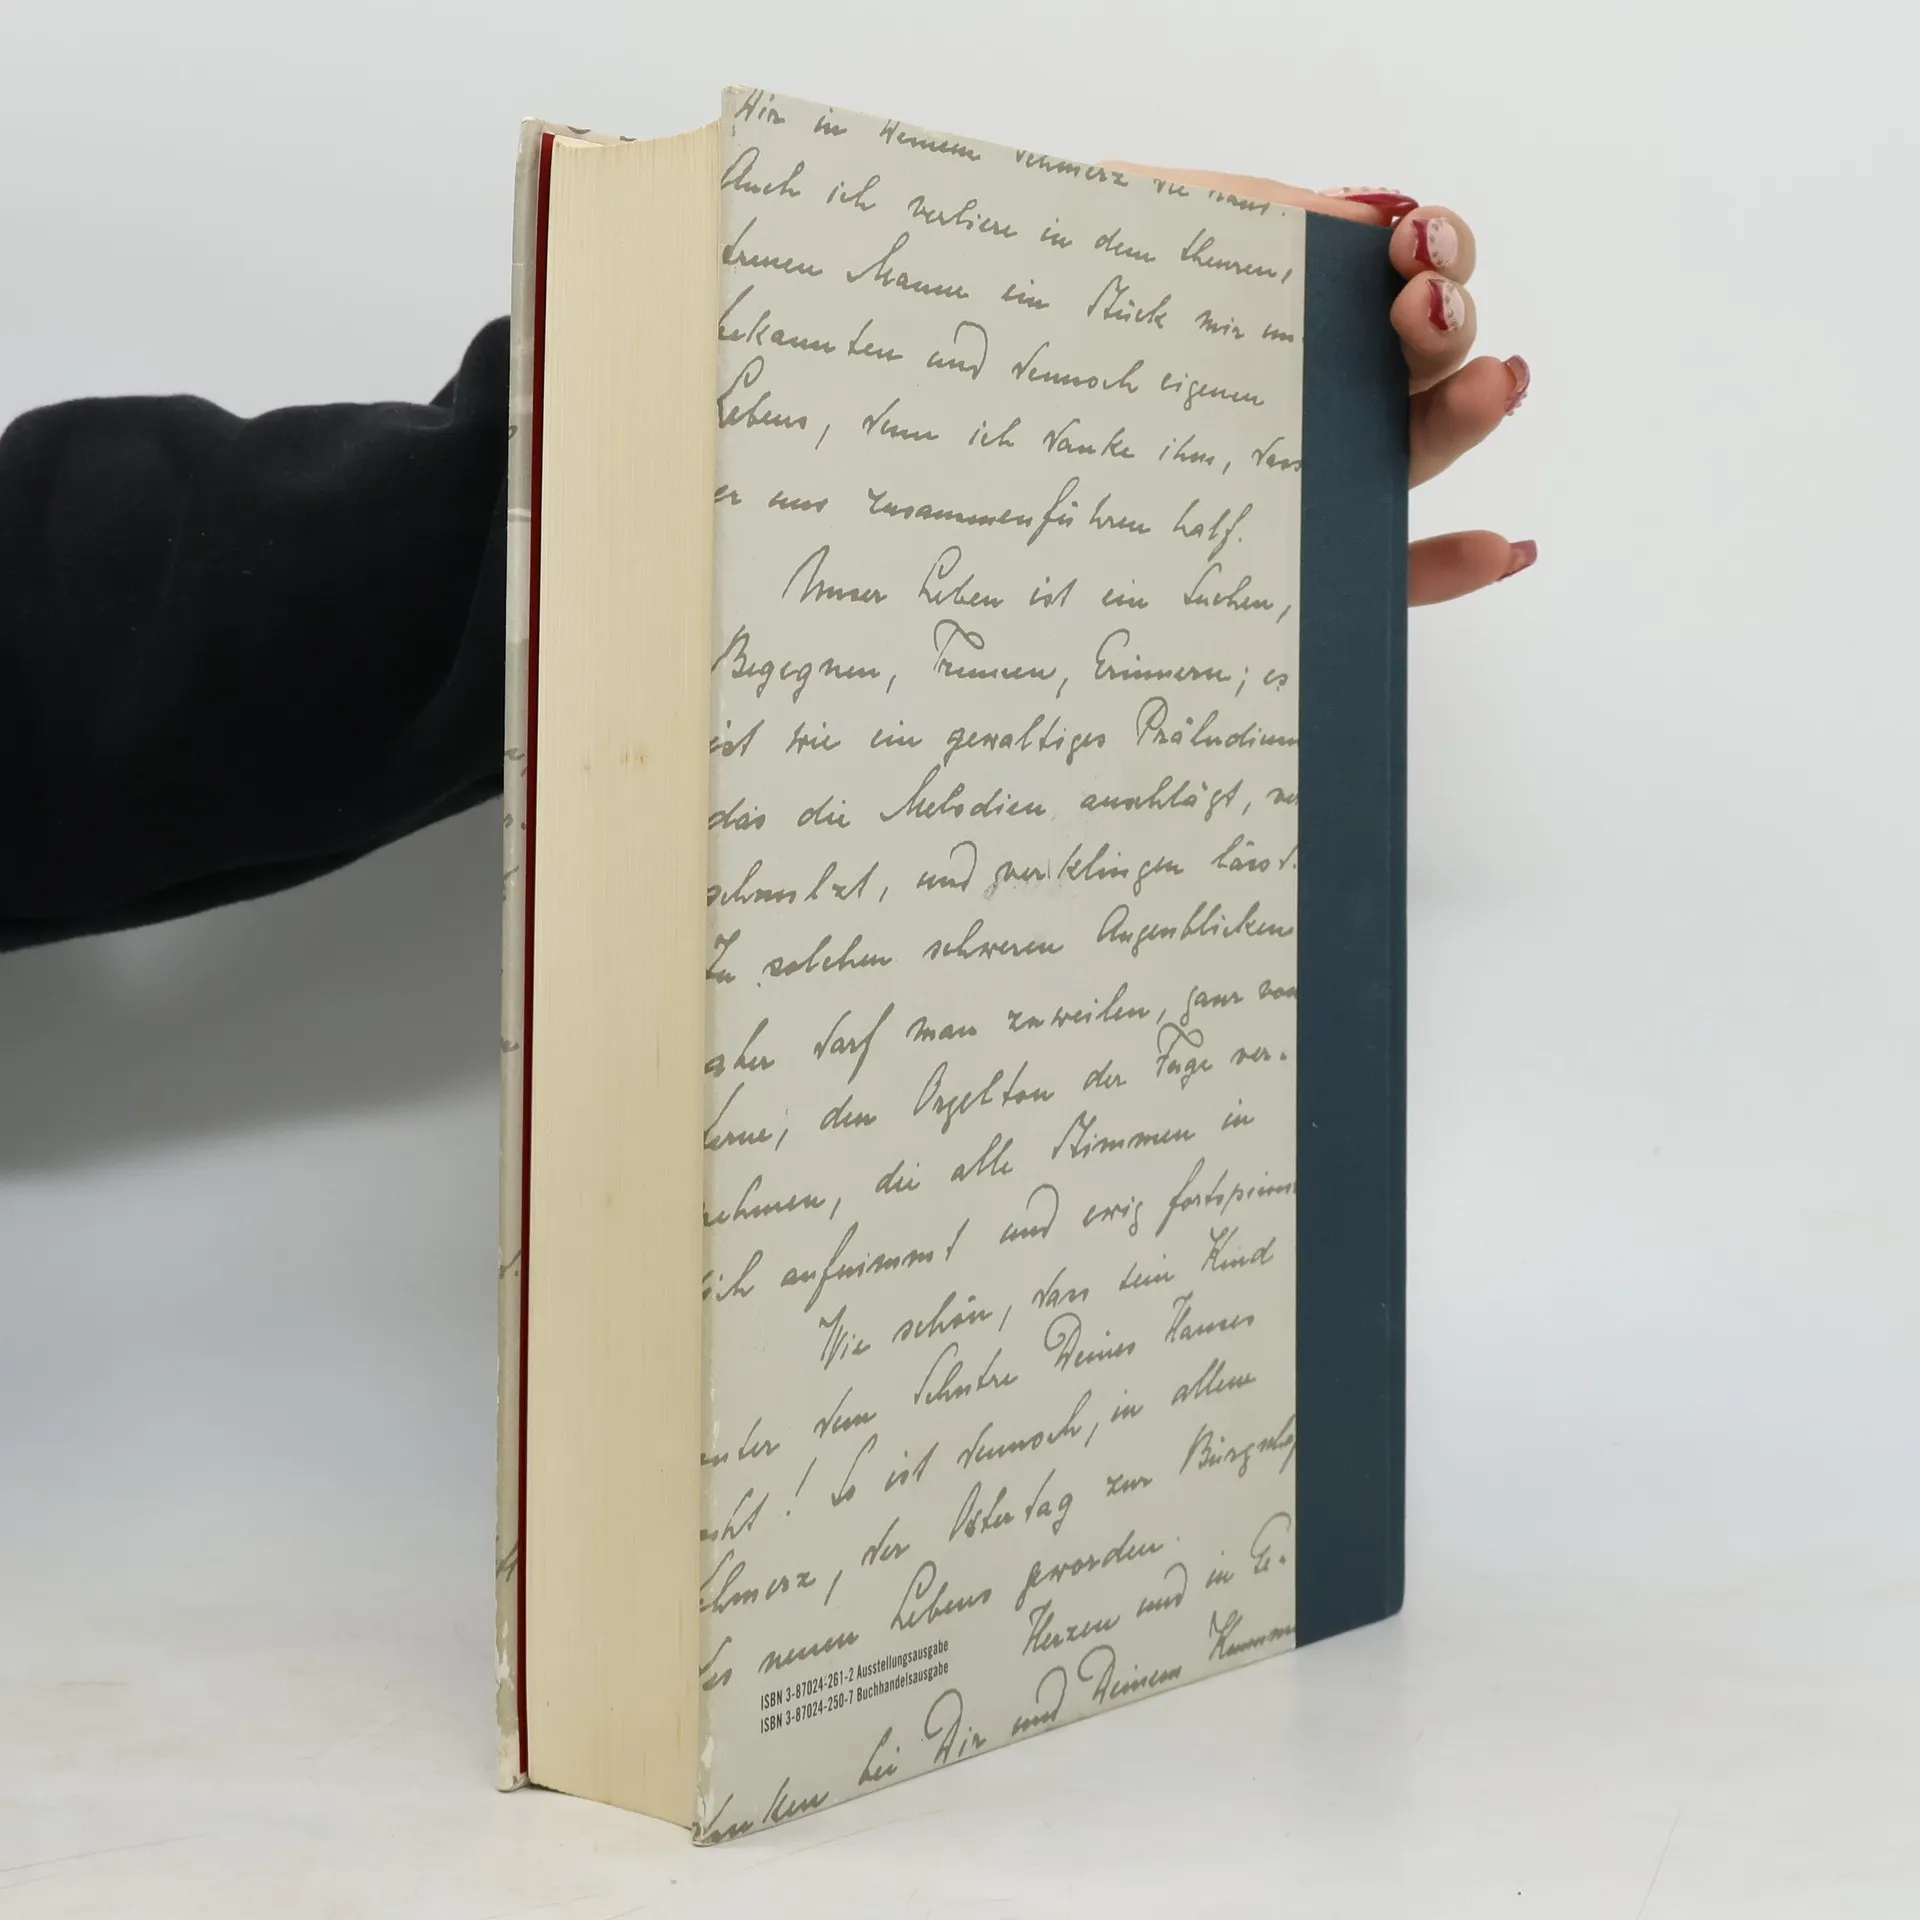 Dir in Deinem Schmerz die Hand.
Auch ich verliere in dem theuren,
treuen Manne ein Stück mir un-
bekannten und dennoch eigenen
Lebens, denn ich danke ihm, dass
er uns zusammenführen half.
Unser Leben ist ein Suchen,
Begegnen, Trennen, Erinnern; es
ist wie ein gewaltiges Präludium
das die Melodien anschlägt, ver
schmilzt, und verklingen lässt.
In solchen schweren Augenblicken
aber darf man zuweilen, ganz von
ferne, den Orgelton der Fuge ver-
nehmen, die alle Stimmen in
sich aufnimmt und ewig fortspinnt
Wie schön, dass sein Kind
unter dem Schutze Deines Hauses
! So ist dennoch, in allem
Schmerz, der Ostertag zur
des neuen Lebens geworden.
Herzen und in Ge-
danken bei Dir und Deinem
ISBN 3-87024-261-2 Ausstellungsausgabe
ISBN 3-87024-250-7 Buchhandelsausgabe